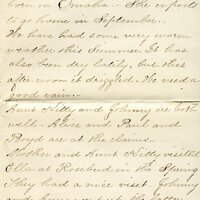 born in Omaha - She expects
to go home in September.
We have had some very warm
weather this Summer. It has
also been dry lately, but this
after-noon it drizzled. We need a
good rain.
Aunt Kitty and Johnny are both
well. Alice and Paul and
Boyd are at the claims.
Mother and Aunt Kitty visited
Ella at Rosebud in the Spring
They had a nice visit. Johnny
and